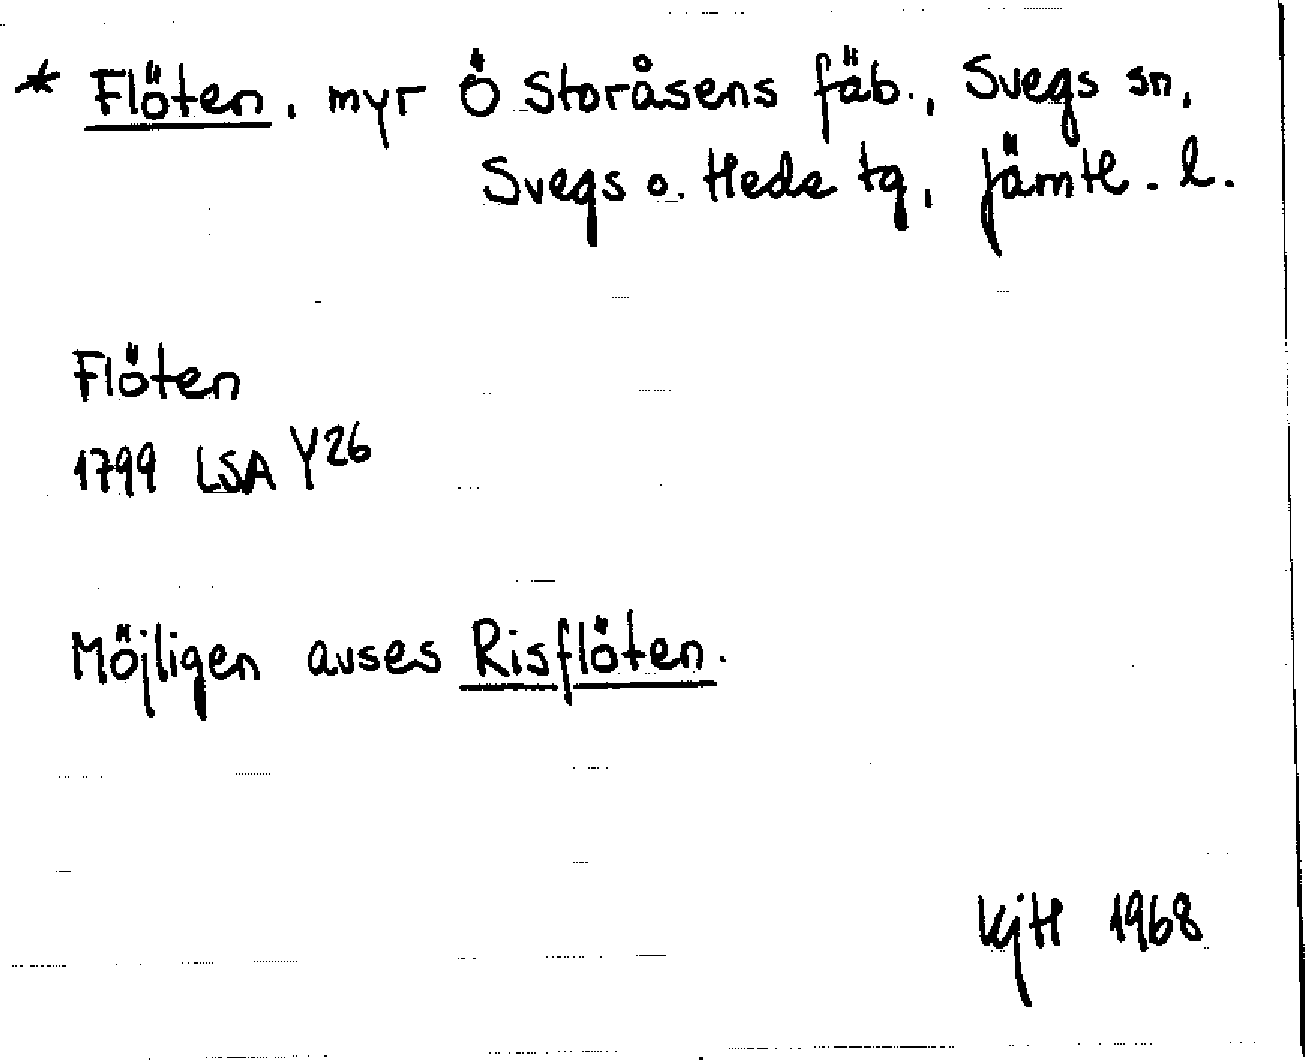 * Flöten, myr Ö Storåsens fäb., Svegs sn,
Svegs o. Hede tg, Jämtl. l.
Flöten
1799 LSA Y26
Möjligen avses Risflöten.
KjH 1968